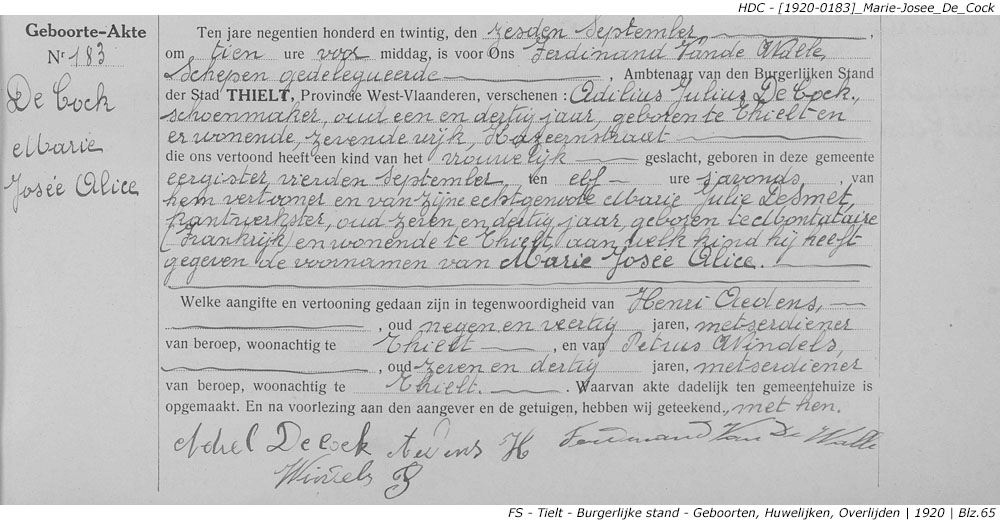 HDC - [1920-0183]_Marie-Josee_De_Cock
Geboorte-Akte
Nr 183
De Cock
Marie
Josée Alice
Ten jare negentien honderd en twintig, den zesden September,
om tien ure voor middag, is voor Ons Ferdinand Vande Walle,
Schepen gedelegueerde, Ambtenaar van den Burgerlijken Stand
der Stad THIELT, Provincie West-Vlaanderen, verschenen : Adilius Julius De Cock,
schoenmaker, oud een en dertig jaar, geboren te Thielt en
er wonende, zevende wijk, Hazeernstraat
die ons vertoond heeft een kind van het vrouwelijk geslacht, geboren in deze gemeente
eergister vierden September ten elf ure s'avonds, van
hem vertooner en van zijne echtgenote Marie Julie Desmet,
kantwerkster, oud zeven en dertig jaar, geboren te Montataire
(Frankrijk) en wonende te Thielt, aan welk kind hij heeft
gegeven de voornamen van Marie Josée Alice.
Welke aangifte en vertooning gedaan zijn in tegenwoordigheid van Henri Aedens,
, oud negen en veertig jaren, metserdiener
van beroep, woonachtig te Thielt, en van Petrus Windels,
, oud zeven en dertig jaren, metserdiener
van beroep, woonachtig te Thielt. Waarvan akte dadelijk ten gemeentehuize is
opgemaakt. En na voorlezing aan den aangever en de getuigen, hebben wij geteekend, met hen.
De Cock H Ferdinand Van De Walle
Windels P
FS - Tielt - Burgerlijke stand - Geboorten, Huwelijken, Overlijden | 1920 | Blz.65